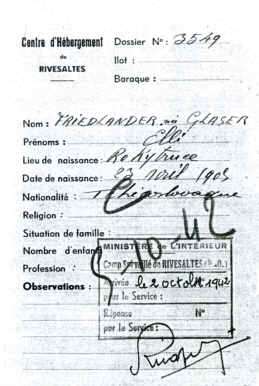 Centre d'Hébergement
de
RIVESALTES
Dossier N° : 3549
Ilot :
Baraque :
Nom : FRIEDLANDER née GLASER
Prénoms : Elli
Lieu de naissance : Rokytnice
Date de naissance : 23 avril 1903
Nationalité : Tchécoslovaque
Religion :
Situation de famille :
Nombre d'enfants
Profession :
Observations :
5-10-42
MINISTÈRE de L'INTÉRIEUR
Camp Surveillé de RIVESALTES (P.O.)
Arrivée le 2 octobre 1942
pour le Service :
Réponse N°
pour le Service :